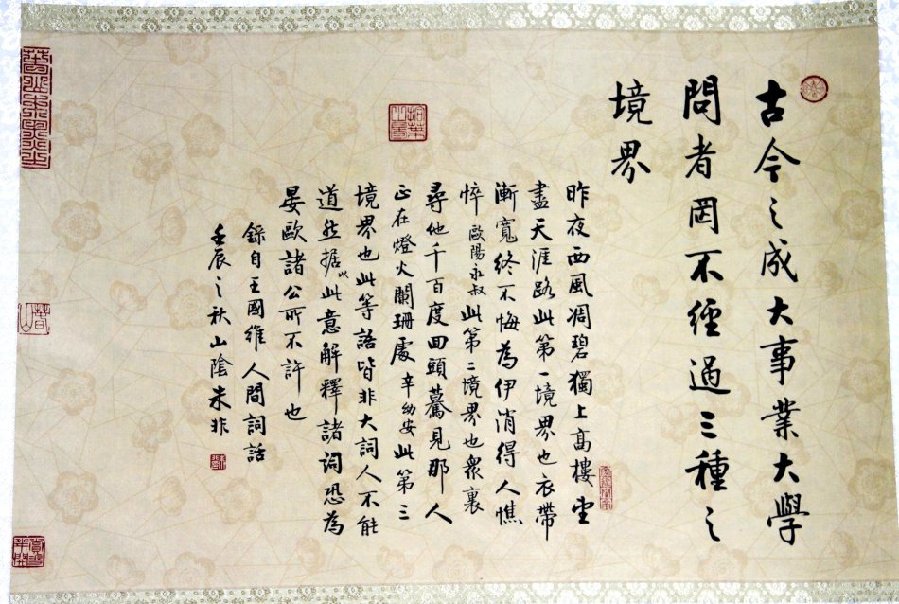 古今之成大事業大學
問者罔不經過三種之
境界
昨夜西風凋碧獨上高樓望
盡天涯路此第一境界也衣帶
漸寬終不悔為伊消得人憔
悴歐陽永叔此第二境界也衆裏
尋他千百度回頭驀見那人
正在燈火闌珊處辛幼安此第三
境界也此等語皆非大詞人不能
道然据以此意解釋諸詞恐為
晏歐諸公所不許也
錄自王國維人間詞話
壬辰之秋山陰朱非